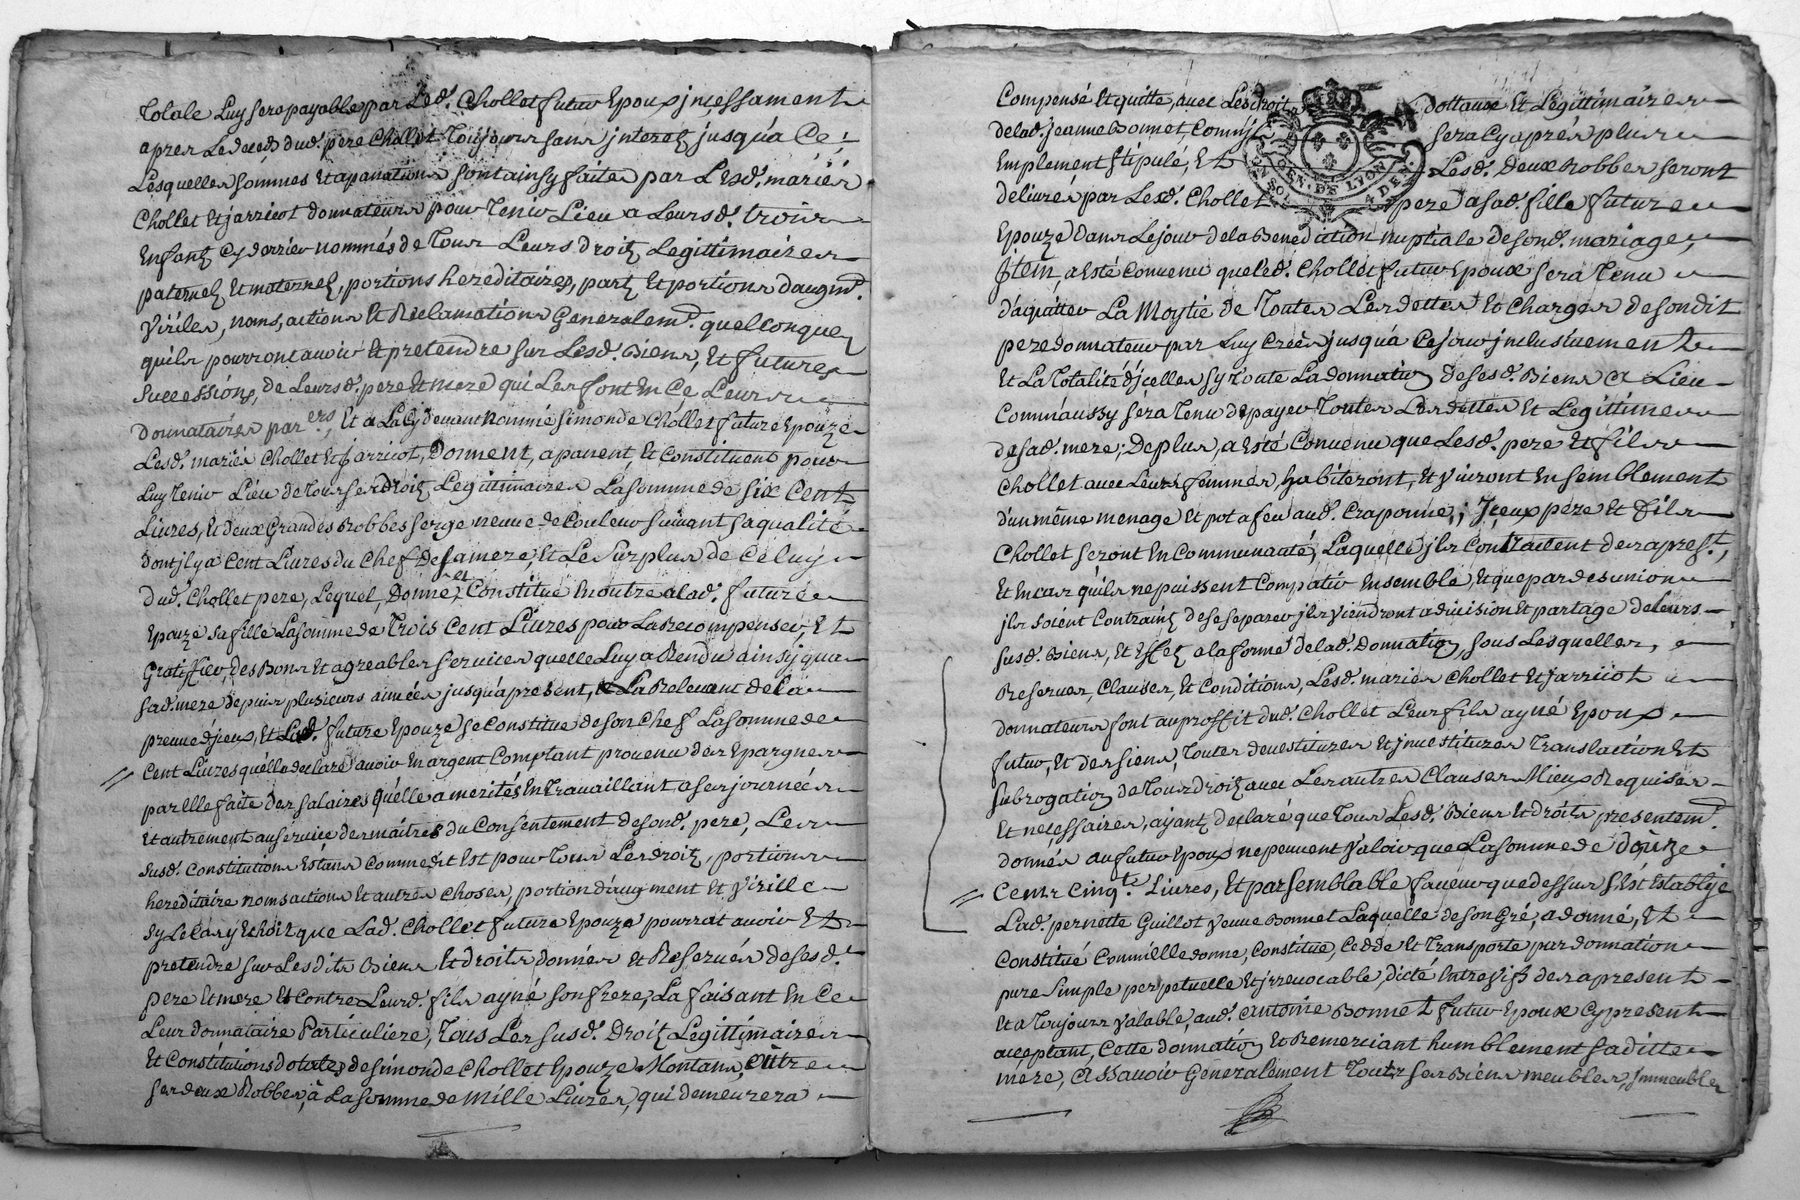 totale Luy sera payable par Led. Chollet futur Epoux jncessament
apres Le deceds dud. pere Chollet toujours sans jnterest jusqu'a Ce;
Lesquelles sommes et apanations sont ainsy faites par Lesd. mariés
Chollet et jarricot donnateurs pour tenir Lieu a Leursd. trois
Enfants Cy derrier nommés de tous Leurs droits Legittimaires
paternels et maternels, portions hereditaires, parts et portions d'augmt.
Viriles, noms, actions et Reclamations Generalemt. quelconques
quils pourront avoir et pretendre sur Lesd. Biens, et futures
Successions, de Leursd. pere et mere qui Les font En Ce Leurs
donnataires par ers, et a La Cy devant nommé Simonde Chollet future Epouze
Lesd. mariés Chollet et jarricot, Donnent, apanent, et Constituent pour
Luy tenir Lieu de tous ses droits Legittimaires La somme de Six Cent
Livres, et deux Grandes Robbes serge neuve de Couleur suivant sa qualité
dont jl y a Cent Livres du Chef de sa mere, et Le surplus de Celuy
dud. Chollet pere, Lequel, donne et Constitue En outre a lad. future
Epouze sa fille La somme de trois Cent Livres pour La Recompenser, Et
Gratiffier, des Bons et agreables services quelle Luy a Rendu ainsy qua
sad. mere depuis plusieurs années jusqu'a present, La Relevant de la
preuve d'jceux, et Lad. future Epouze se Constitue de son Chef La somme de
Cent Livres quelle declare avoir En argent Comptant provenu des Epargnes
par Elle faite des salaires quélle a merités En travaillant a ses journées
Et autrement au service des maîtres du Consentement de sond. pere, Les
susd. Constitutions Estans Comme dit Est pour tous Les droits, portions
hereditaire noms actions Et autres choses, portion d'augment et Virille
que Lad. Chollet future Epouze pourrat avoir Et
pretendre sur Lesdits Biens et droits donnés et Reservés de sesd.
pere Et mere Et Contre Leurd. fils ayné son frere, La faisant En Ce
Leur donnataire Particuliere, tous Les susd. Droits Legittimaires
Et Constitutions dotales de simonde Chollet Epouze Montana, outre
ses deux Robbes, à La somme de Mille Livres, qui demeurera
Compensé Et quitte, avec Les droits dottaux Et Legittimaires
de lad. jeanne Bonnet, Comm'jl sera Cy aprés plus
Emplement stipulé, Et Lesd. Deux Robbes seront
delivrés par Led. Chollet pere a sad. fille future
Epouze dans Le jour de la Benediction nuptiale de sond. mariage,
Jtem, a Esté Convenu que led. Chollet futur Epoux sera tenu
d'aquitter La Moytié de toutes Les dettes et Charges de sondit
pere donnateur par Luy Créés jusqu'á Ce jour jnclusivement
Et La totalité d'jcelles sy toute La donnation de sesd. Biens a Lieu
Comm'aussy séra tenu de payer toutes Les dettes Et Legittimes
de sad. mere; De plus, a Esté Convenu que Lesd. pere Et fils
Chollet avec Leurs femmes, habiteront, Et Vivront Ensemblement
d'un même menage Et pot a feu aud. Craponne; Jceux pere Et fils
Chollet seront En Communauté, Laquelle jls Contractent des aprest.,
Et En cas quils ne puissent Compatir Ensemble, Et que par desunion
jls soient Contraints de se separer jls viendront a division Et partage de Leurs
susd. Biens, Et Effets a la forme de lad. Donnation, sous Lesquelles,
Reserves, Clauses, Et Conditions, Lesd. mariés Chollet Et jarricot
donnateurs font au proffit dud. Chollet Leur fils ayné Epoux
futur, Et des siens, toutes devestitures Et jnvestitures translaction Et
subrogation de tous droits avec Les autres Clauses Mieux Requises
Et necessaires, ayant declaré que tous Lesd. Biens Et droits presentemt.
donnés au futur Epoux ne peuvent Valoir que La somme de douze
Cents Cinqte. Livres, Et par semblable faveur que dessus s'Est Establye
Lad. pernette Guillot veuve Bonnet Laquelle de son Gré, a donné, Et
Constitué Comm'élle donne, Constitue, Cedde Et transporte par donnation
pure simple perpetuelle Et jrrevocable, dicté Entre Vifs des a present
Et a toujours valable, aud. antoine Bonnet futur Epoux Cy present
acceptant, Cette donnation Et Remerciant humblement sa ditte
mere, a ssavoir Generalement touts ses Biens meubles, jmmeubles
GEN. DE LYON